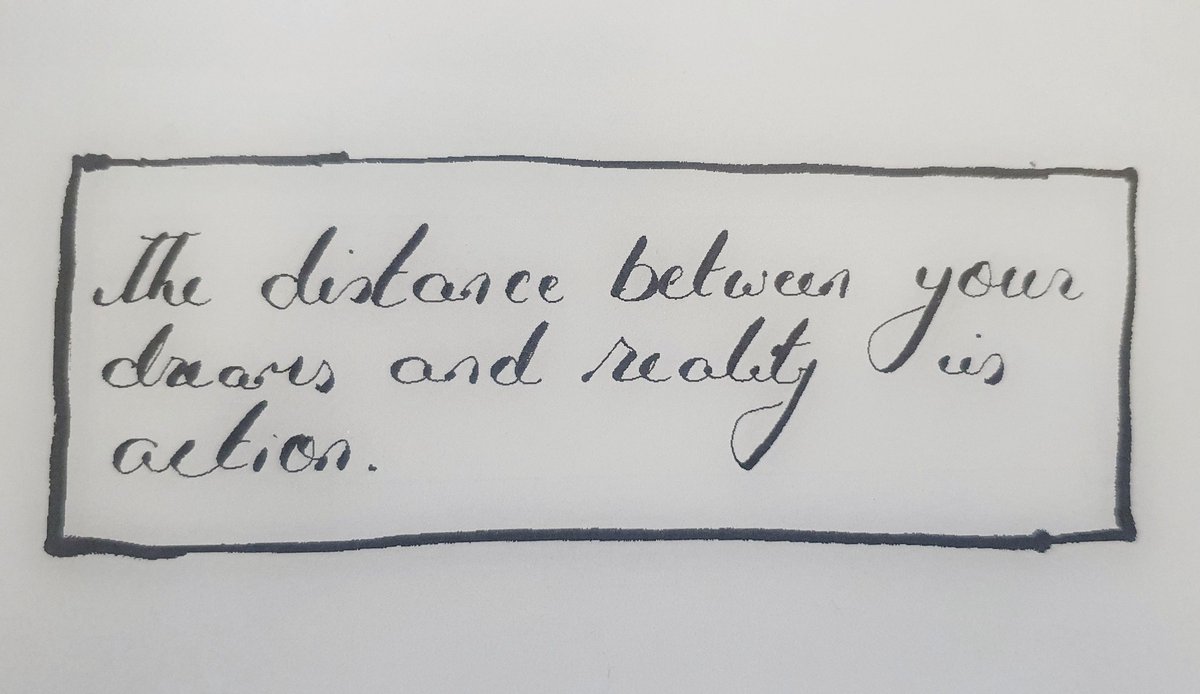 The distance between your
dreams and reality is
action.